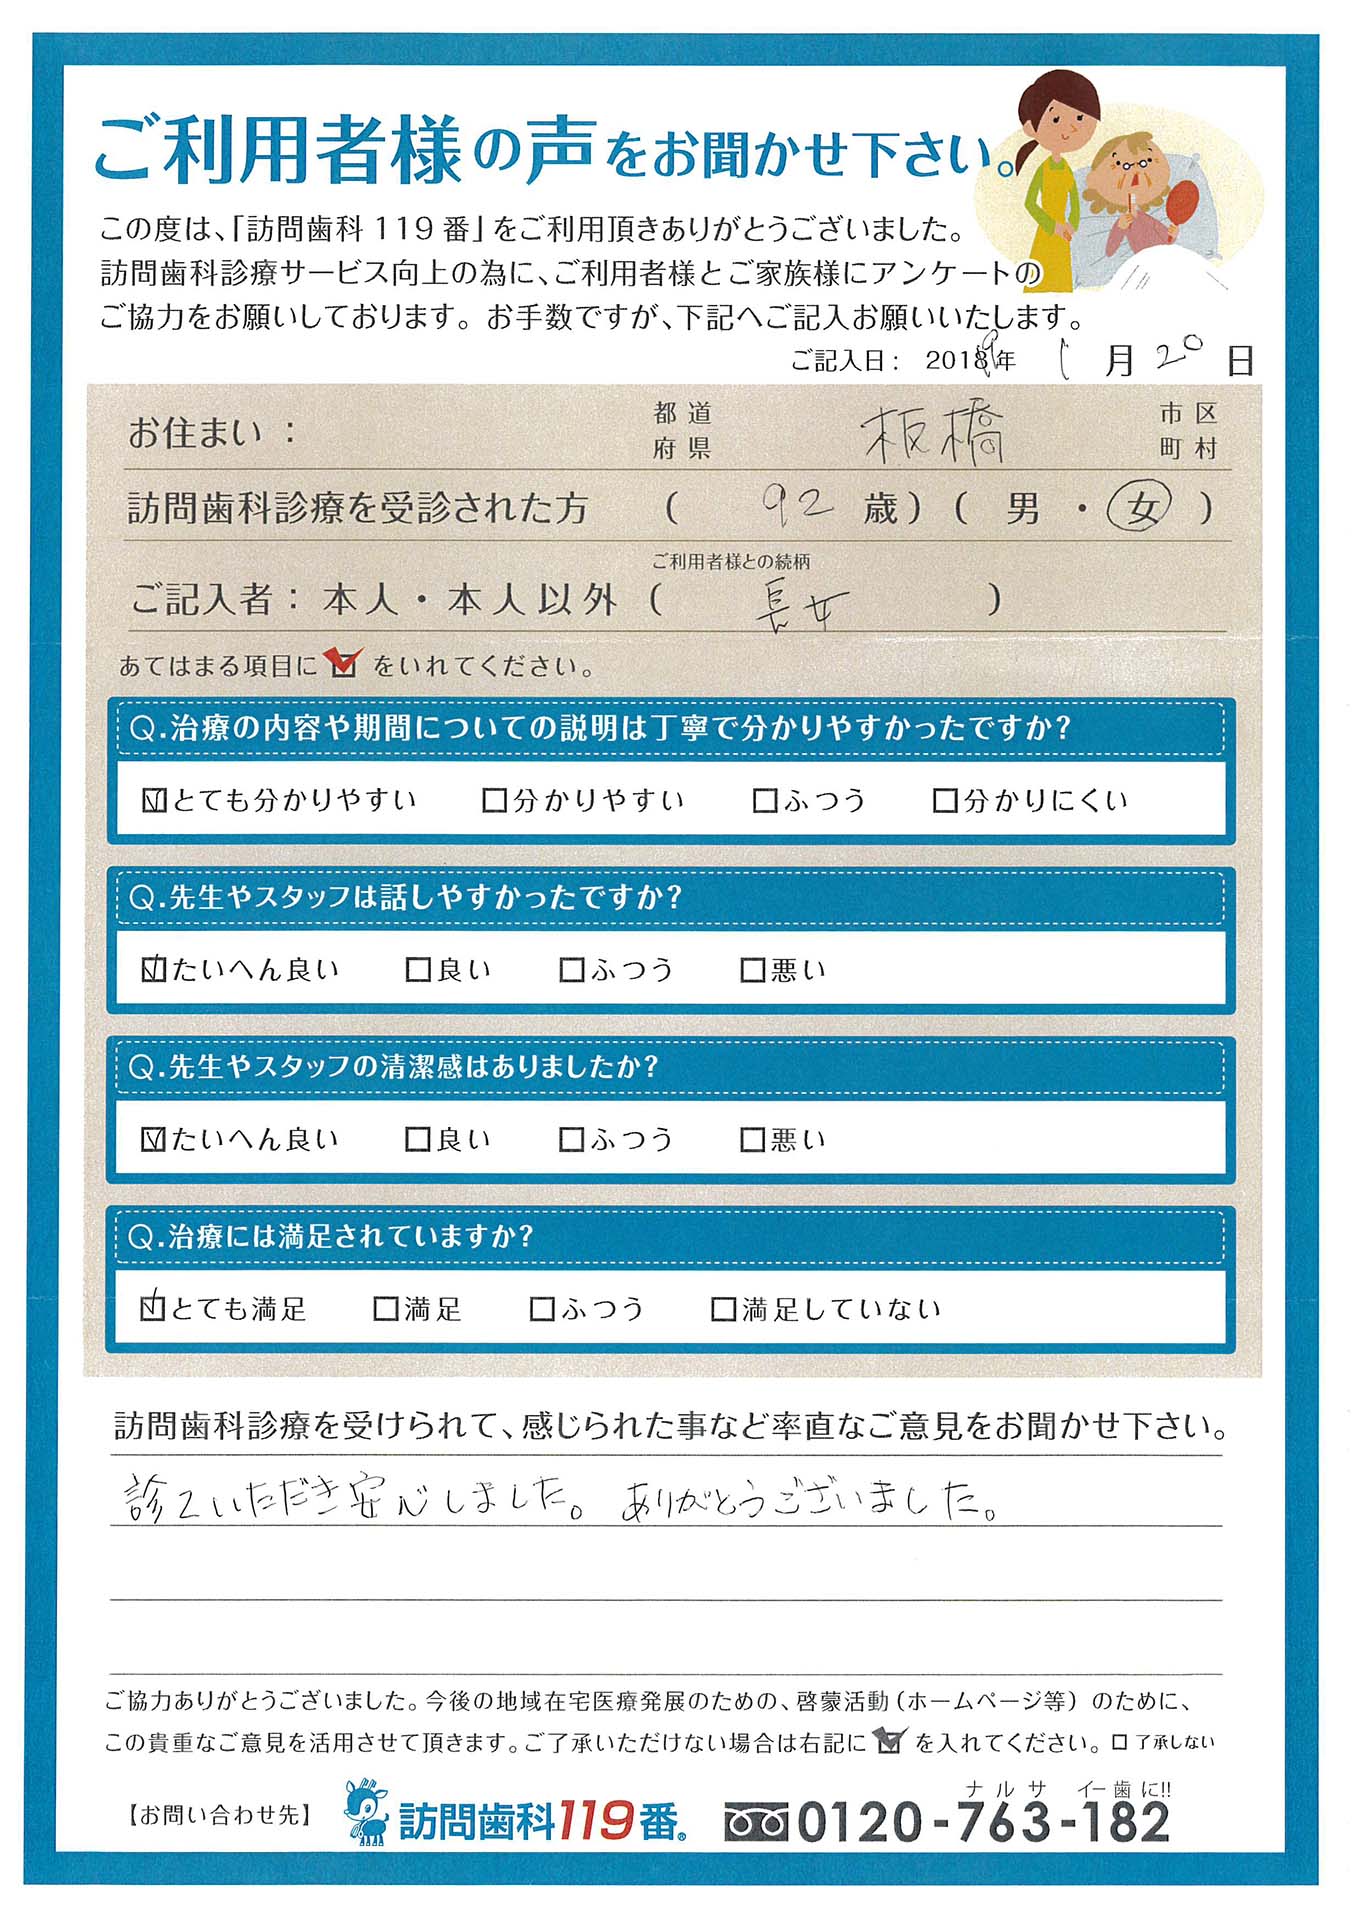 ご利用者様の声をお聞かせ下さい。
この度は、「訪問歯科119番」をご利用頂きありがとうございました。
訪問歯科診療サービス向上の為に、ご利用者様とご家族様にアンケートの
ご協力をお願いしております。お手数ですが、下記へご記入お願いいたします。
ご記入日： 2019年 1月20日
お住まい： 都道府県 板橋 市区町村
訪問歯科診療を受診された方 （ 92 歳）（ 男 ・ 女 ）
ご利用者様との続柄
ご記入者：本人・本人以外（ 長女 ）
あてはまる項目に☑をいれてください。
Q.治療の内容や期間についての説明は丁寧で分かりやすかったですか？
☑とても分かりやすい □分かりやすい □ふつう □分かりにくい
Q.先生やスタッフは話しやすかったですか？
☑たいへん良い □良い □ふつう □悪い
Q.先生やスタッフの清潔感はありましたか？
☑たいへん良い □良い □ふつう □悪い
Q.治療には満足されていますか？
☑とても満足 □満足 □ふつう □満足していない
訪問歯科診療を受けられて、感じられた事など率直なご意見をお聞かせ下さい。
診ていただき安心しました。ありがとうございました。
ご協力ありがとうございました。今後の地域在宅医療発展のための、啓蒙活動（ホームページ等）のために、
この貴重なご意見を活用させて頂きます。ご了承いただけない場合は右記に☑を入れてください。□了承しない
ナルサ イー歯に!!
【お問い合わせ先】 訪問歯科119番® 0120-763-182